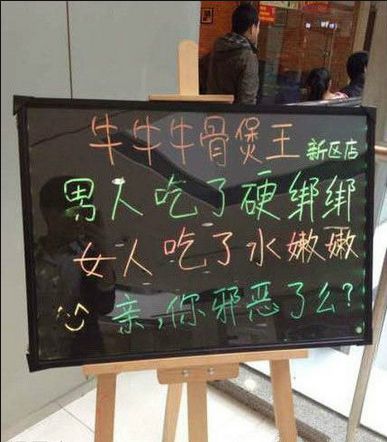 牛牛牛骨煲王 新区店
男人吃了硬绑绑
女人吃了水嫩嫩
亲,你邪恶了么?